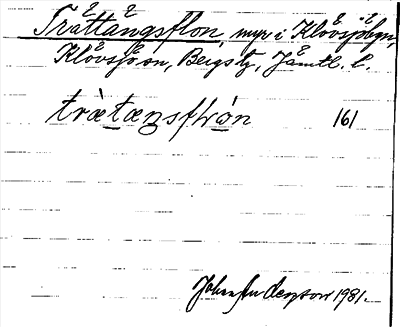 Trättängsflon, myr i Klövsjöbyn,
Klövsjö sn, Bergs tg, Jämtl. l.
trætænsflón 161
Johan Anderson 1981.